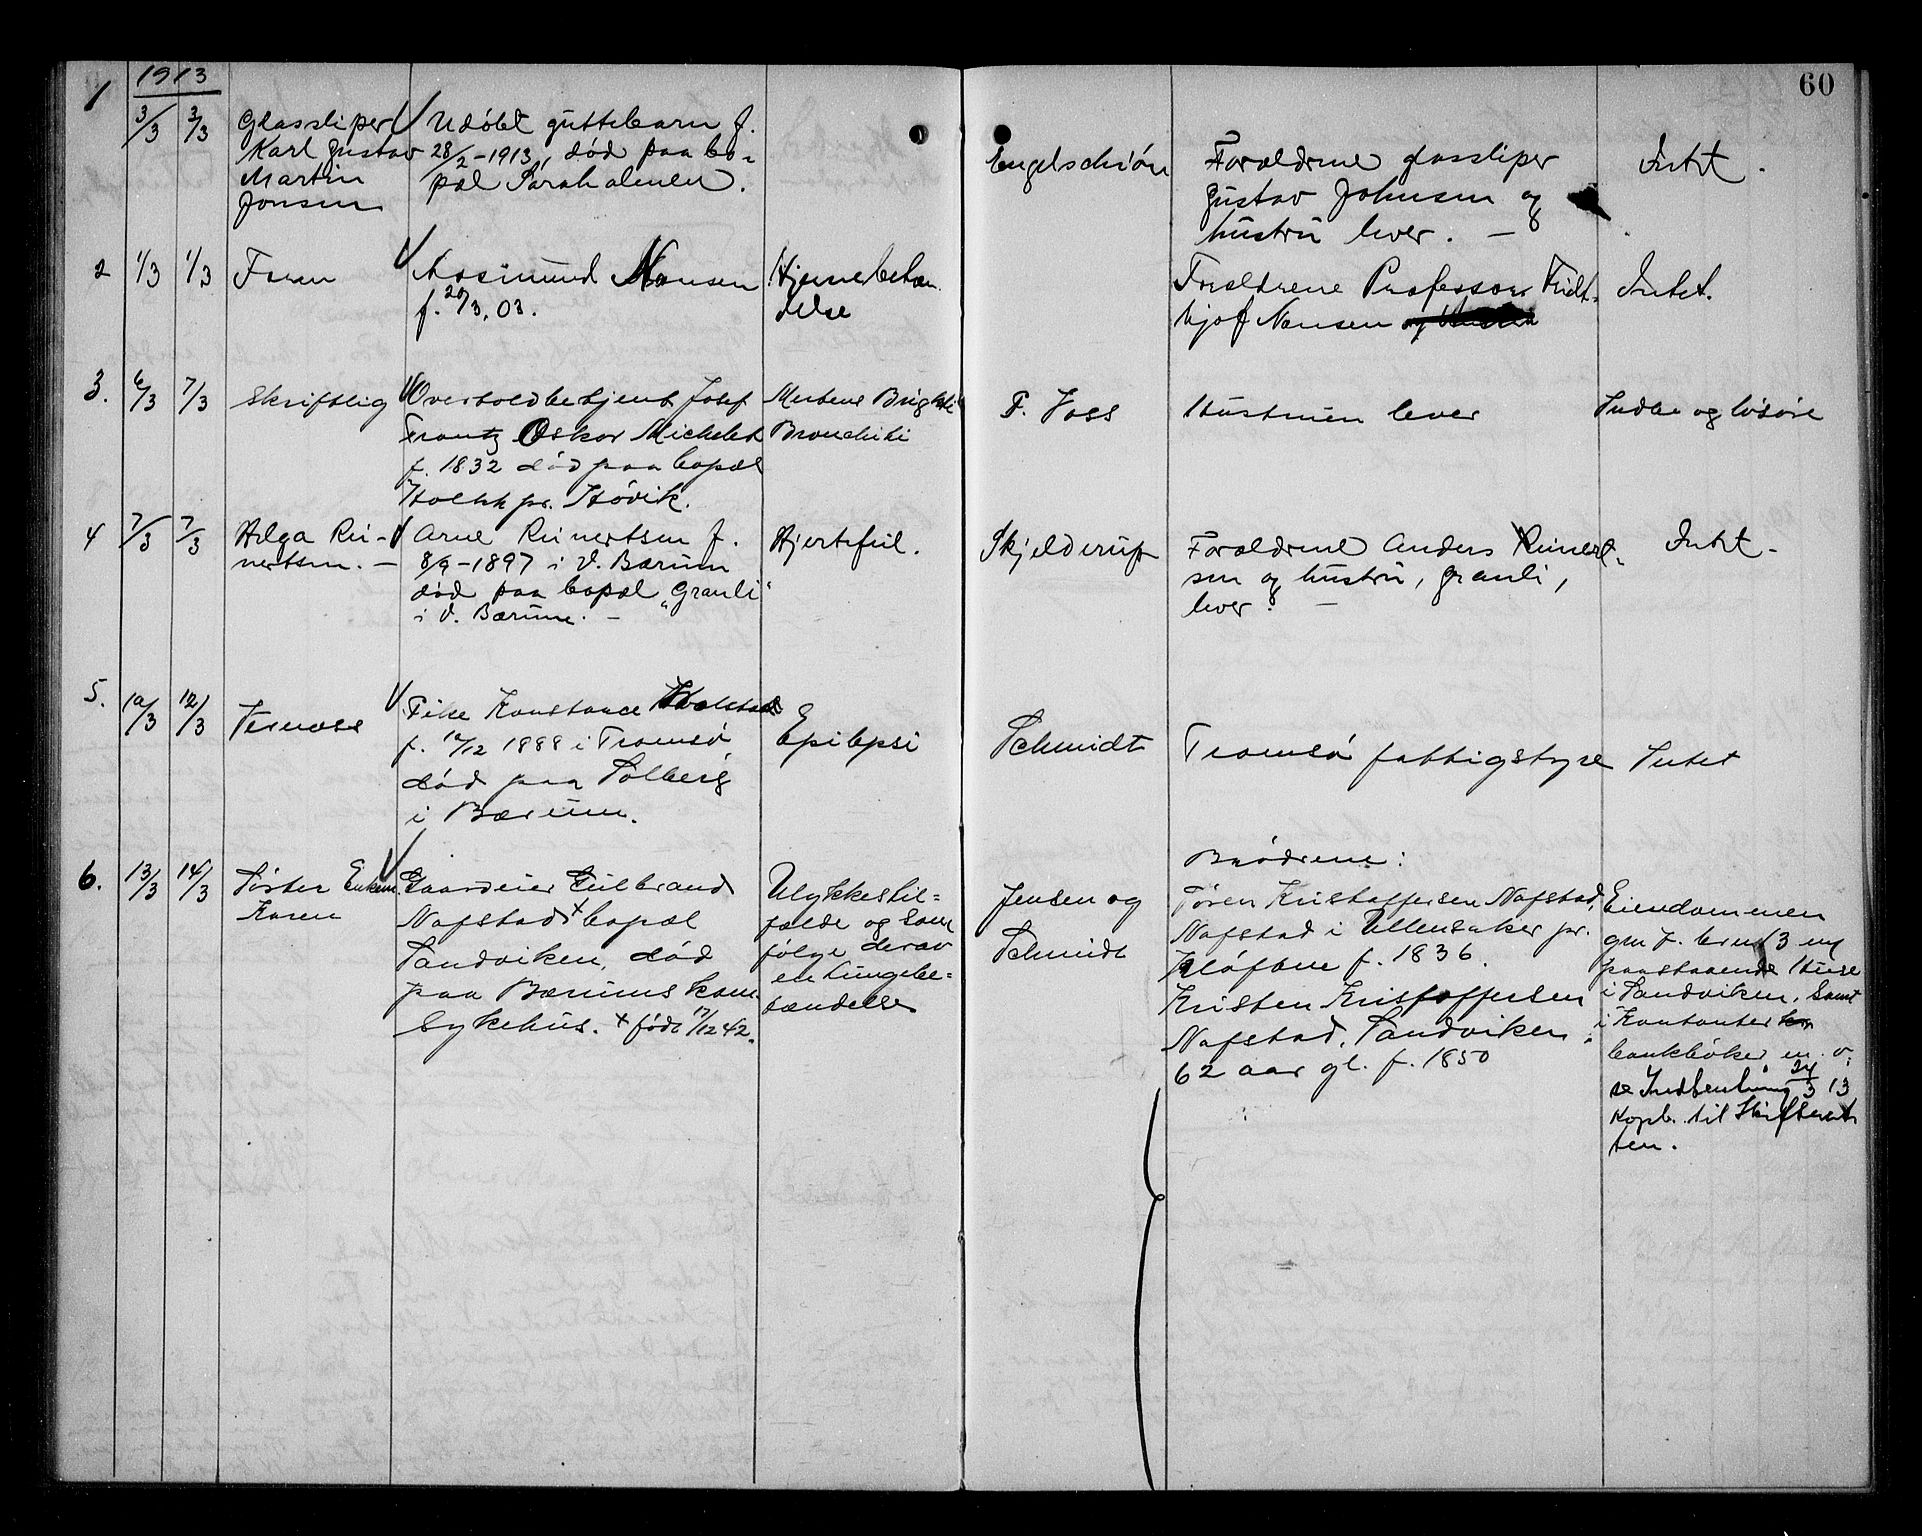 1913
60
1
3/3
3/3
Glassliper
Karl Gustav
Martin
Jonsen
Udøbt guttebarn f.
28/2-1913, død paa bo-
pæl
Engelschiøn
Forældrene glassliper
Gustav Johnsen og
hustru lever. —
Intet.
2
1/3
1/3
Faren
Aasmund Nansen
f. 20/3.03.
Hjernebetæn
delse
Forældrene Professor Fridt-
hjof Nansen
Intet.
3.
6/3
7/3
Skriftlig
Overtoldbetjent Josef
Frantz Oskar Michelet
f. 1832 død paa bopæl
pr. Høvik.
Morbus Brighti
Bronchiti
F. Voss
Hustruen lever
Indbo og løsøre
4
7/3
7/3
Helga Rei-
nertsen. —
Arne Reinertsen f.
8/9-1897 i V. Bærum
død paa bopæl "Granli"
i V. Bærum. —
Hjertefeil.
Skjelderup
Forældrene Anders Reinert-
sen og hustru, Granli,
lever. —
Intet —
5.
10/3
12/3
Pike Konstance
f. 10/12 1888 i Tromsø
død paa Solberg
i Bærum.
Epilepsi
Schmidt
Tromsø fattigstyre
Intet
6.
13/3
14/3
Søster Enkem
Karen
Gaardeier Gulbrand
Nafstad + bopæl
Sandviken, død
paa Bærums kom.
sykehus. + født 17/12 42.
Ulykkestil=
fælde og som
følge derav
en lungebe=
tændelse
Jensen og
Schmidt
Brødrene:
Søren Kristoffersen Nafstad,
Nafstad i Ullensaker pr.
Kløften f. 1836.
Kristen Kristoffersen
Nafstad, Sandviken,
62 aar gl. f. 1850
Eiendommen
gm 7. br no 13 med
paastaaende Huse
i Sandviken, samt
i Kontanter
bankbøker m. v.
se Indberetning 24/3 13
Kopb. til Skifteret
ten.